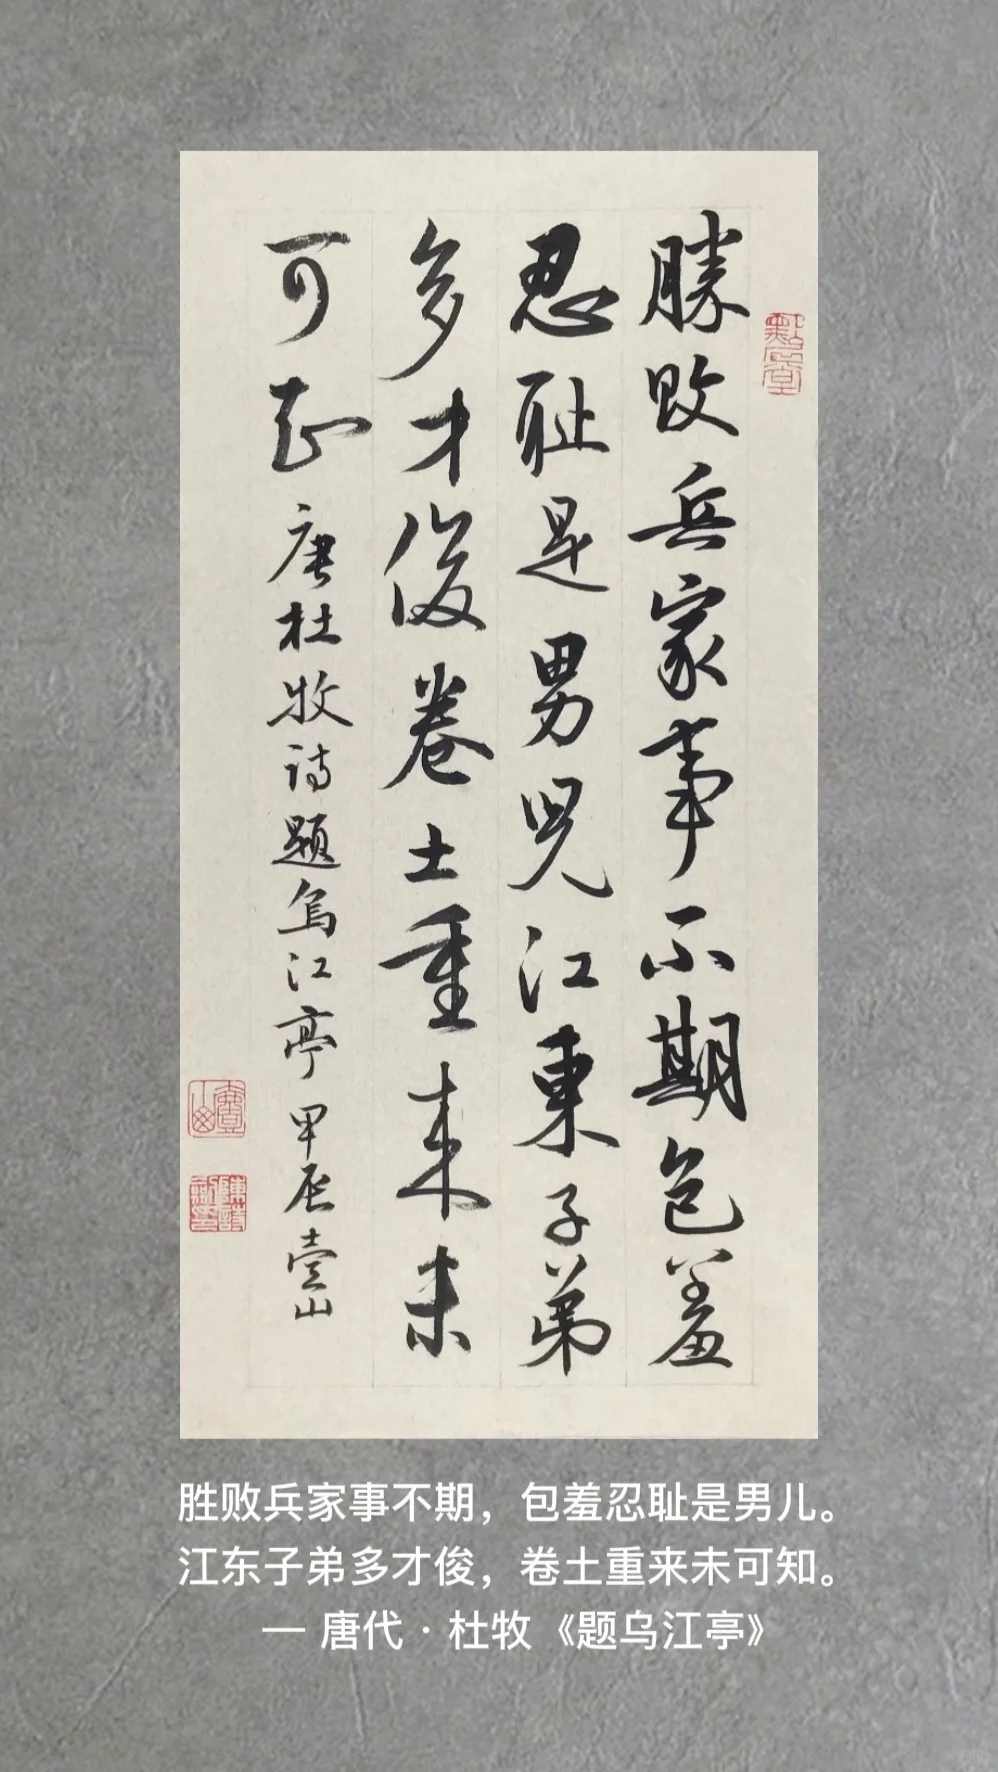 勝敗兵家事不期包羞
忍耻是男兒江東子弟
多才俊卷土重来未
可知唐杜牧诗题烏江亭甲辰壹山
胜败兵家事不期，包羞忍耻是男儿。
江东子弟多才俊，卷土重来未可知。
— 唐代 · 杜牧《题乌江亭》